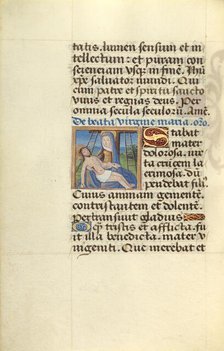 tatis. lumen sensum et in
tellectum: et puram con
scienciam vsq3 in fine3. Qui
cum patre et spiritu sancto
viuis et regnas deus. Per
omnia secula seculorū. Amē.
De beata virgine maria. oro.
Stabat
mater
dolorosa. iux
ta crucem la
crimosa. dū
pendebat fili9
Cuius animam gementē.
contristantem et dolentē.
Pertransiuit gladius.
O q̄3 tristis et afflicta. fu
it illa benedicta. mater v
nigeniti. Que merebat et